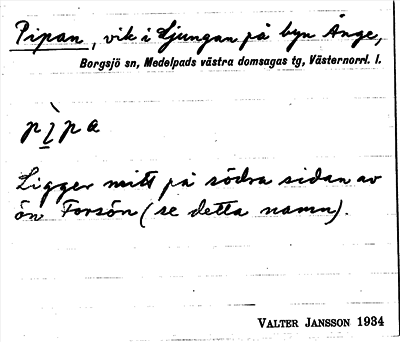 Pipan, vik i Ljungan på byn Ånge,
Borgsjö sn, Medelpads västra domsagas tg, Västernorrl. l.
pìpa
Ligger mitt på södra sidan av
ön Forsön (se detta namn).
VALTER JANSSON 1934